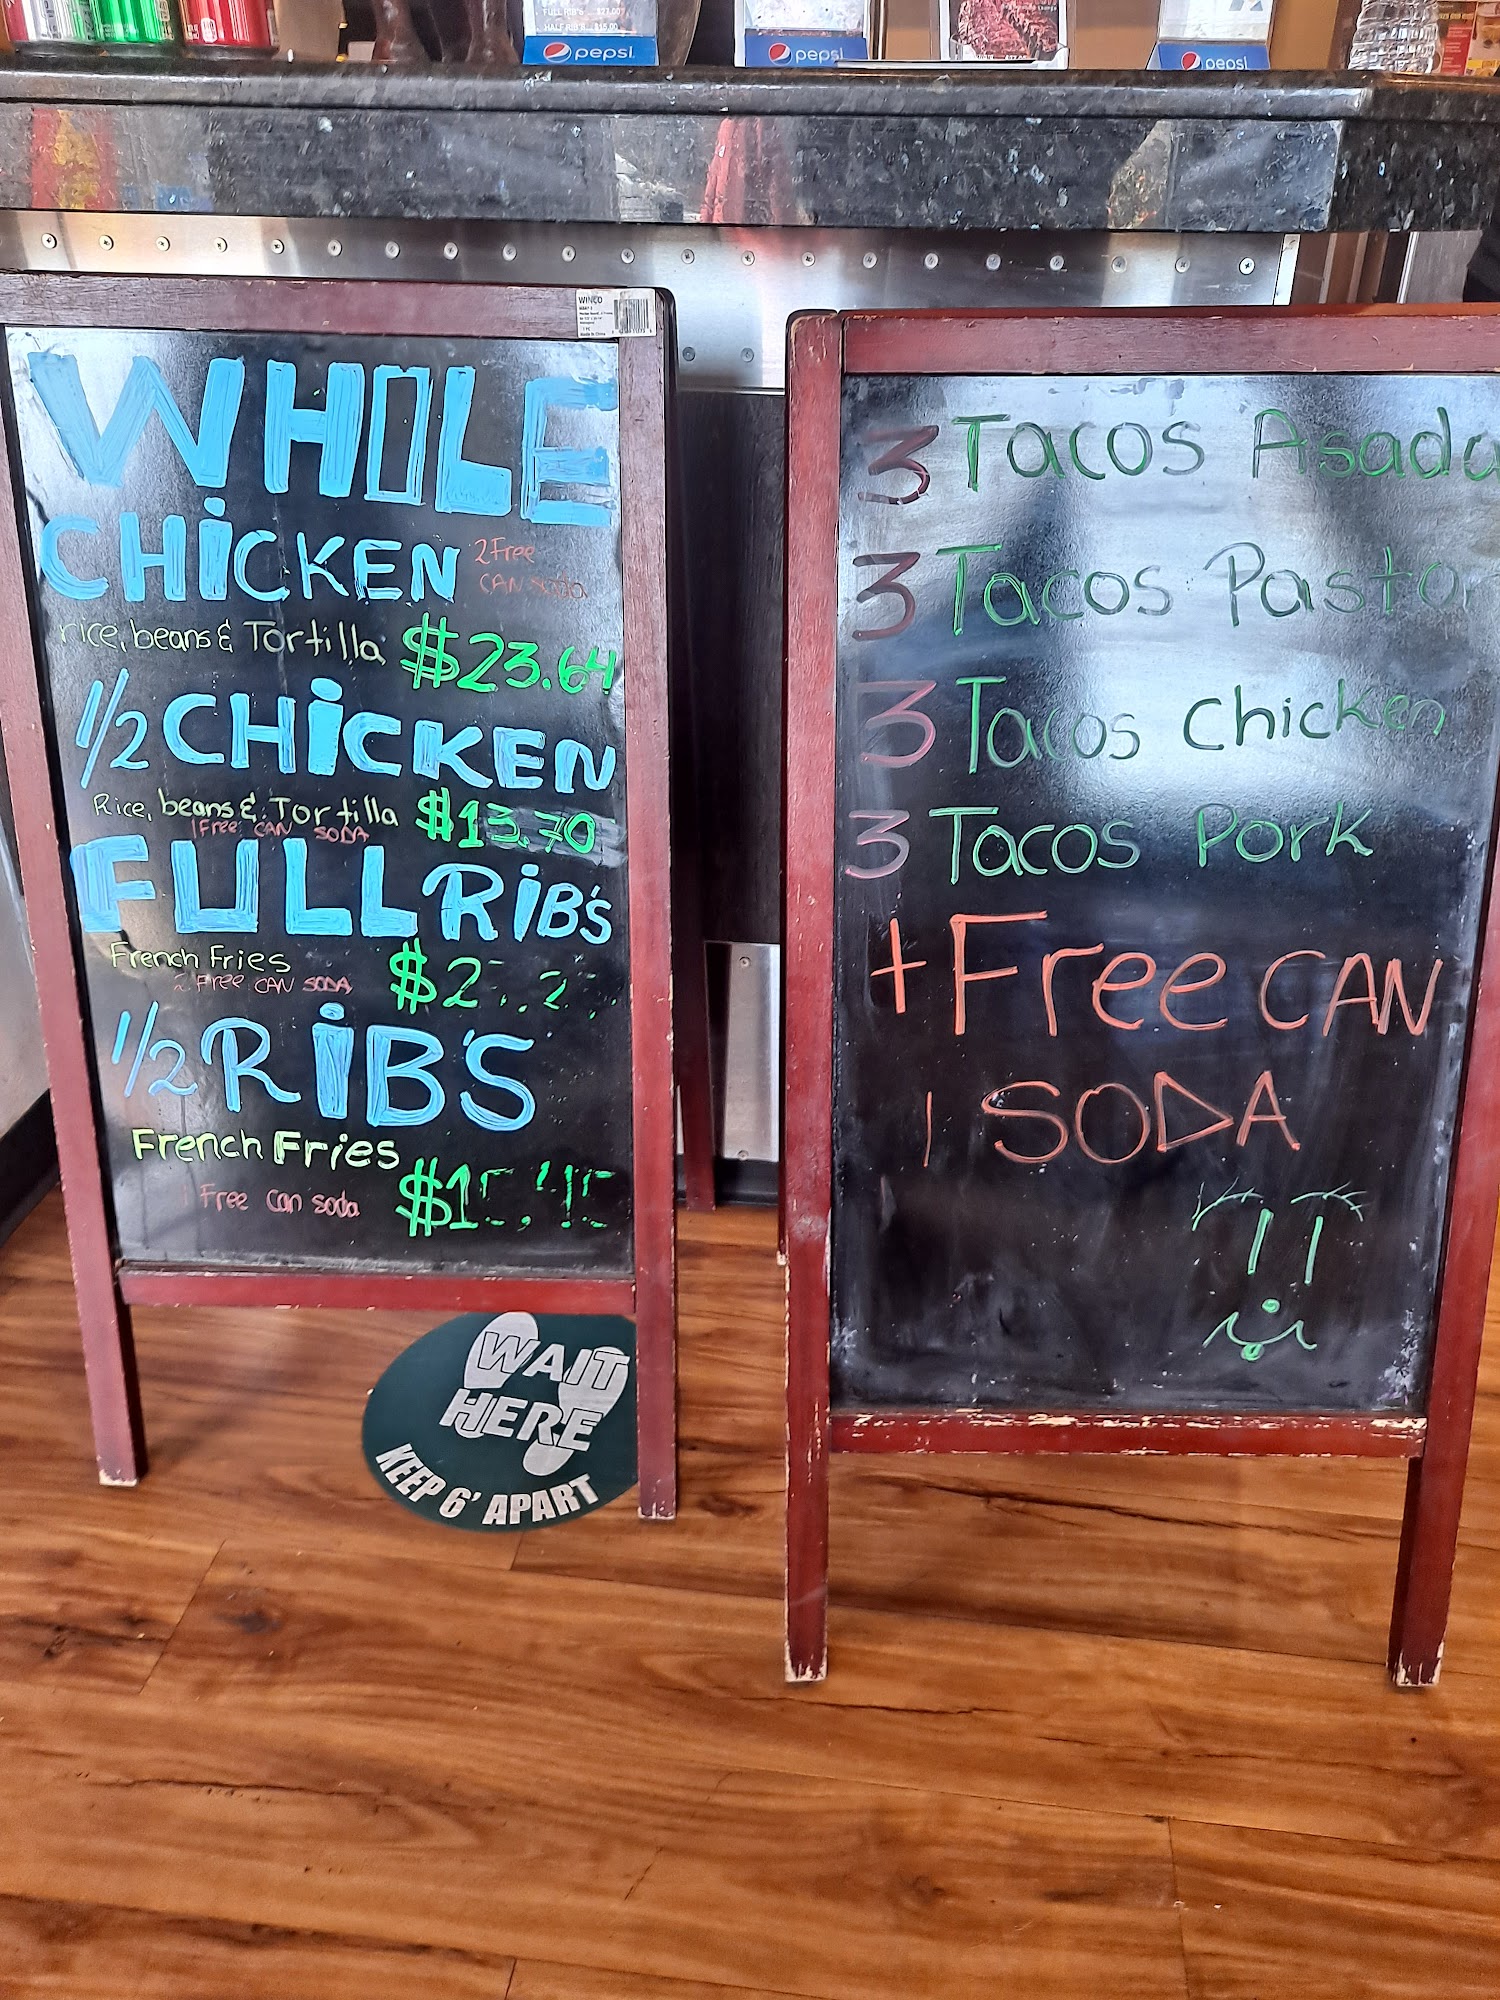 FULL RIB'S ... $27.00
HALF RIB'S ... $15.00
pepsi
pepsi
pepsi
WINCO
Made in China
WHOLE
CHiCKEN
2 Free
CAN soda
rice, beans & Tortilla $23.64
1/2 CHiCKEN
Rice, beans & Tortilla $13.70
1 Free CAN SODA
FULL RiB'S
French Fries
2 Free CAN SODA
1/2 RiB'S
French Fries
1 Free Can Soda
3 Tacos Asada
3 Tacos Pastor
3 Tacos Chicken
3 Tacos Pork
+ Free CAN
1 SODA
WAIT
HERE
KEEP 6' APART